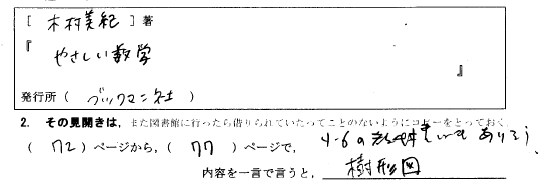 [ 木村美紀 ] 著
『 やさしい数学 』
発行所 ( ブックマン社 )
2. その見開きは, また図書館に行ったら借りられていたってことのないようにコピーをとっておく
( 72 ) ページから, ( 77 ) ページで,
4-6の あり
内容を一言で言うと, 樹形図